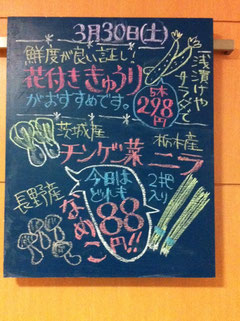 3月30日(土)
鮮度が良い証!
花付ききゅうり
がおすすめです。
5本
298円
浅漬けや
サラダで
茨城産
チンゲン菜
栃木産
ニラ
2把
入り
長野産
なめこ
今日は
どれも
88
円!!